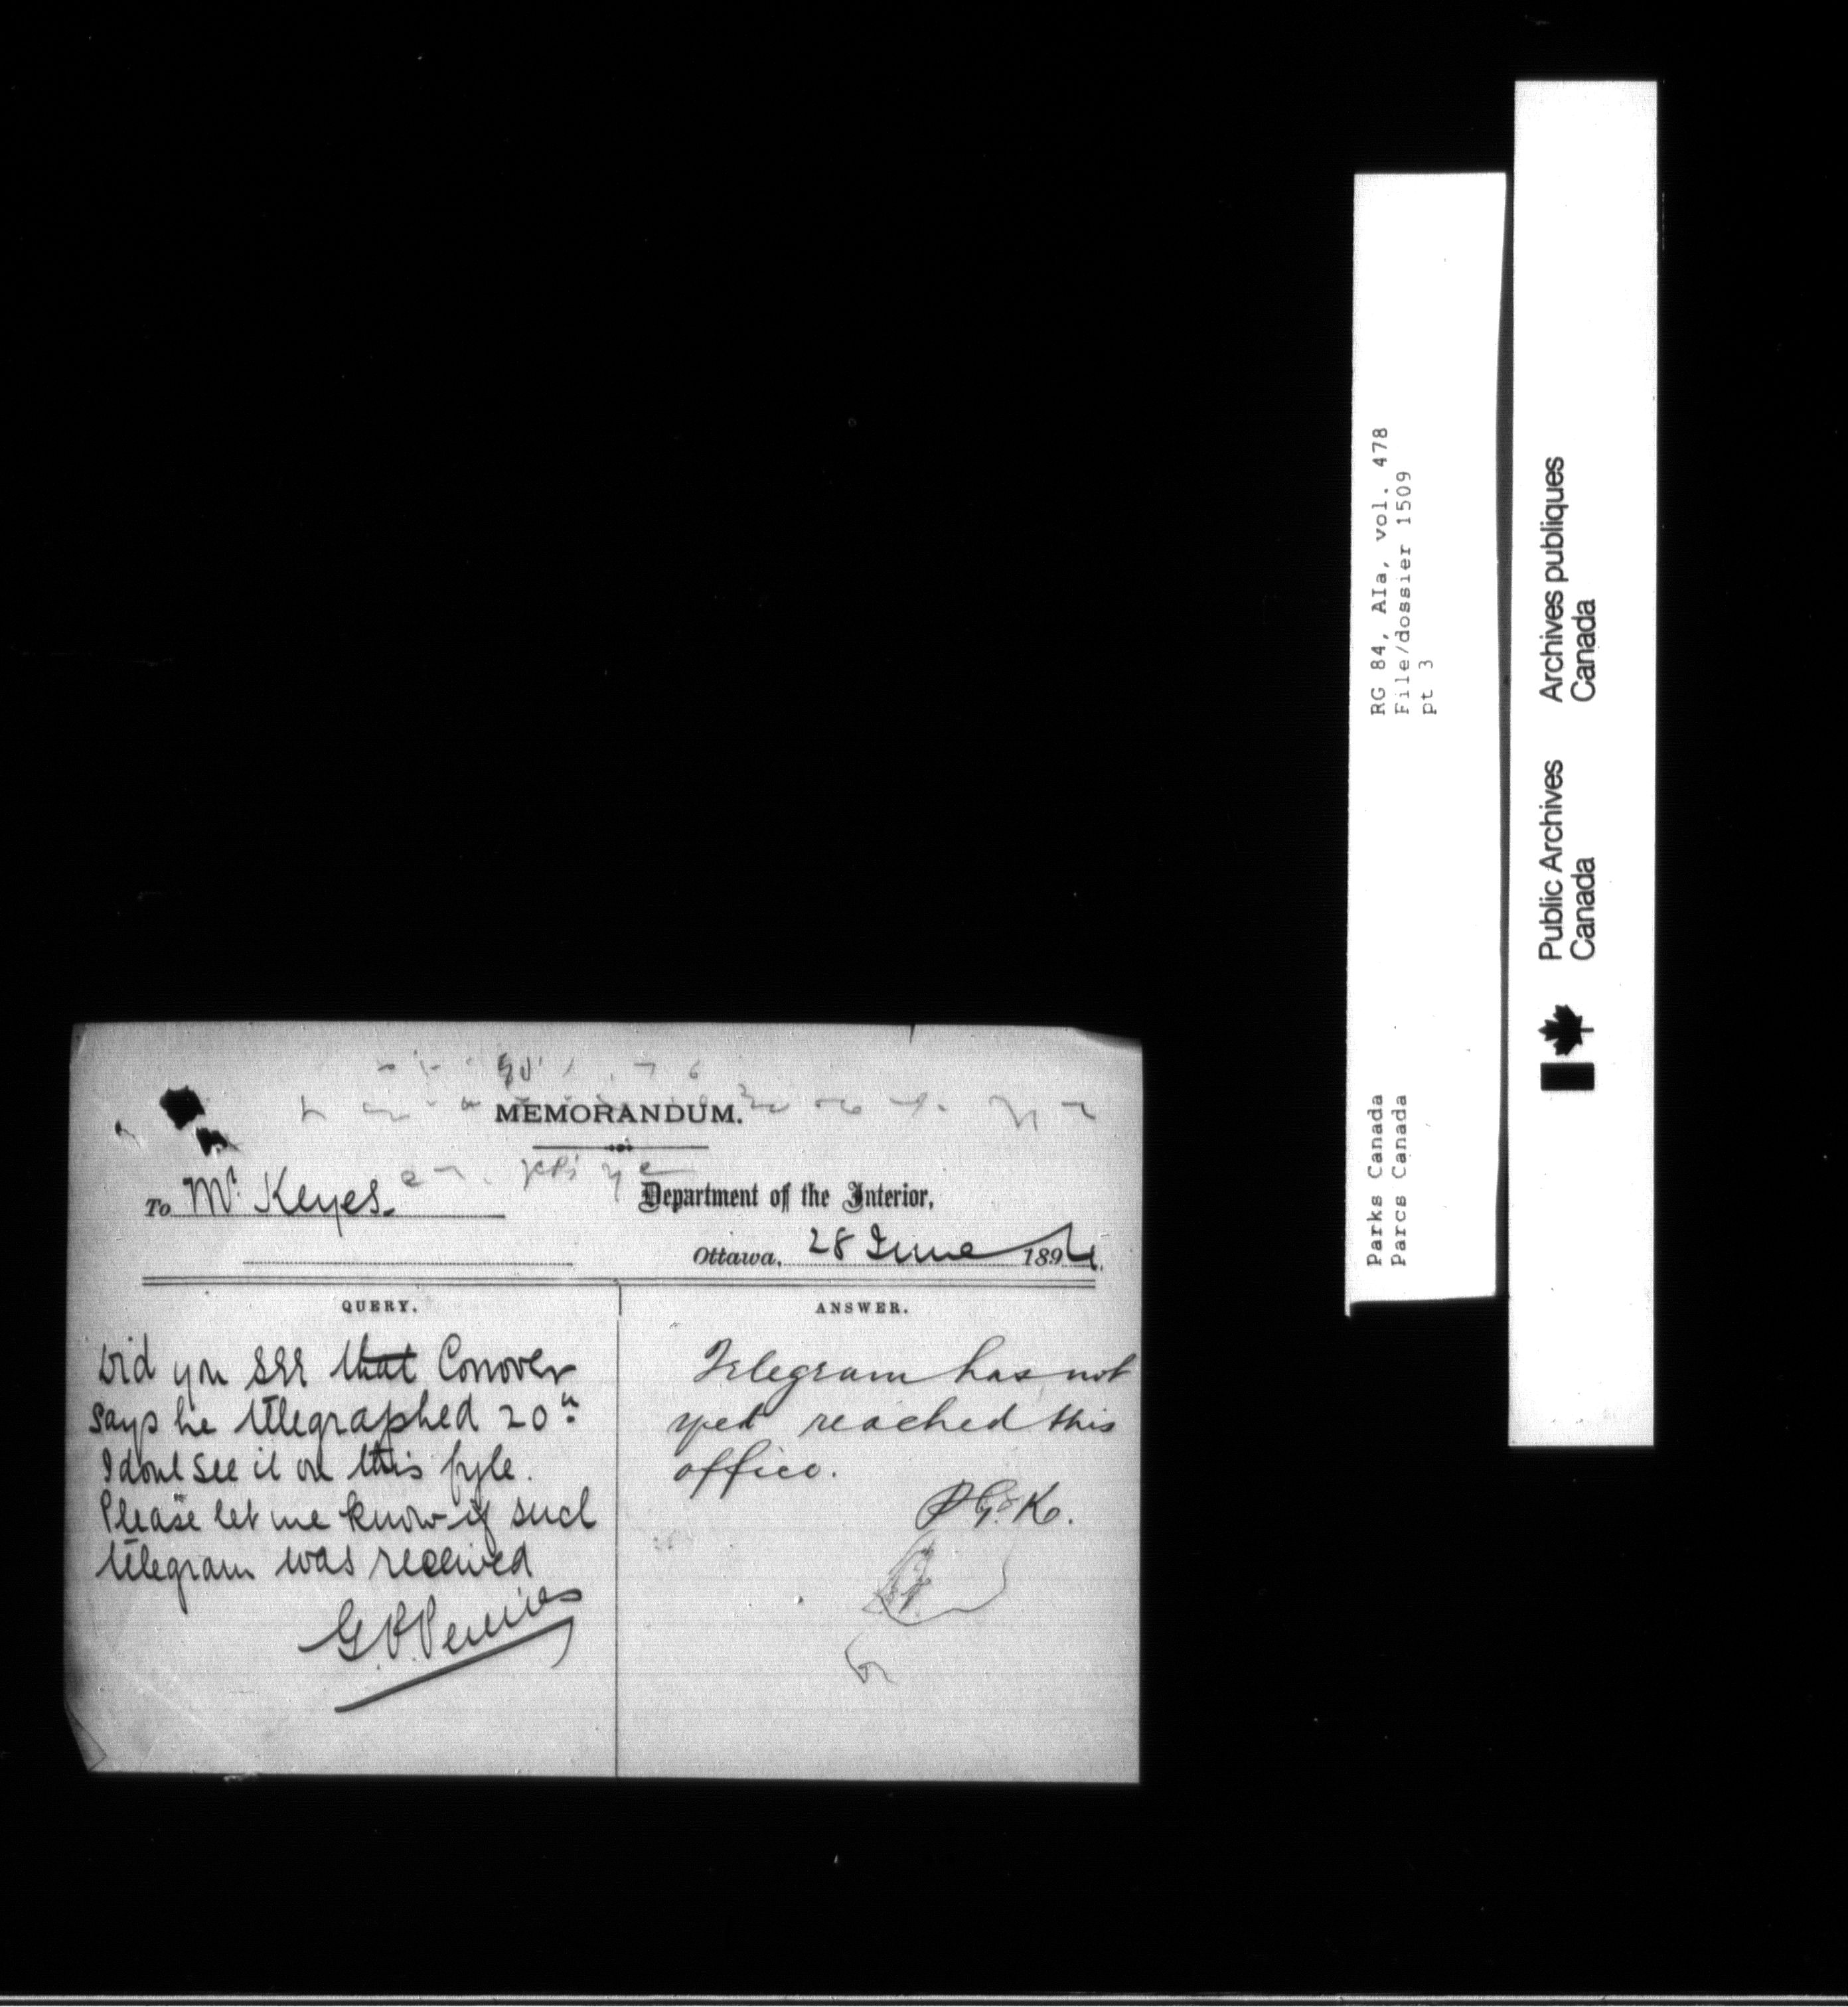 MEMORANDUM.
To Mr. Keyes.
Department of the Interior,
Ottawa, 28 June 1894.
QUERY.
Did you see that Conover
says he telegraphed 20th
I dont see it on this fyle.
Please let me know if such
telegram was received
ANSWER.
Telegram has not
yed reached this
office.
P.G.K.
RG 84, AIa, vol. 478
File/dossier 1509
pt 3
Parks Canada
Parcs Canada
Public Archives
Canada
Archives publiques
Canada